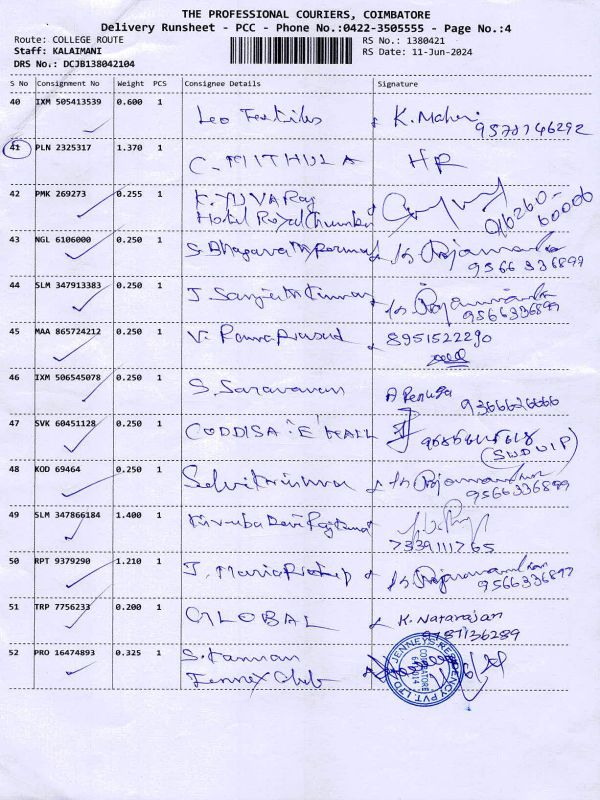 THE PROFESSIONAL COURIERS, COIMBATORE
Delivery Runsheet - PCC - Phone No.:0422-3505555 - Page No.:4
Route: COLLEGE ROUTE
RS No.: 1380421
Staff: KALAIMANI
RS Date: 11-Jun-2024
DRS No.: DCJB138042104
S No Consignment No Weight PCS Consignee Details Signature
40 IXM 505413539 0.600 1 Leo Textiles K. Maheri
9578746292
41 PLN 2325317 1.370 1 C. MITHULA HR
42 PMK 269273 0.255 1 K. YUVARaj
Hotel Royal
43 NGL 6106000 0.250 1 S. Bhagavathy
9566336899
44 SLM 347913383 0.250 1 J. Sanjeeth Kumar
9566336899
45 MAA 865724212 0.250 1 V. Rama Prasad 8951522290
46 IXM 506545078 0.250 1 S. Saravanan A Renuga
9366626666
47 SVK 60451128 0.250 1 CODDISA 'E' HALL
48 KOD 69464 0.250 1
9566336899
49 SLM 347866184 1.400 1
7339111765
50 RPT 9379290 1.210 1 J. Maria
9566336899
51 TRP 7756233 0.200 1 GLOBAL K. Natarajan
9787136289
52 PRO 16474893 0.325 1 S. Kannan
Jennex Club
JENNEYS RESIDENCY PVT. LTD.
COIMBATORE
641014